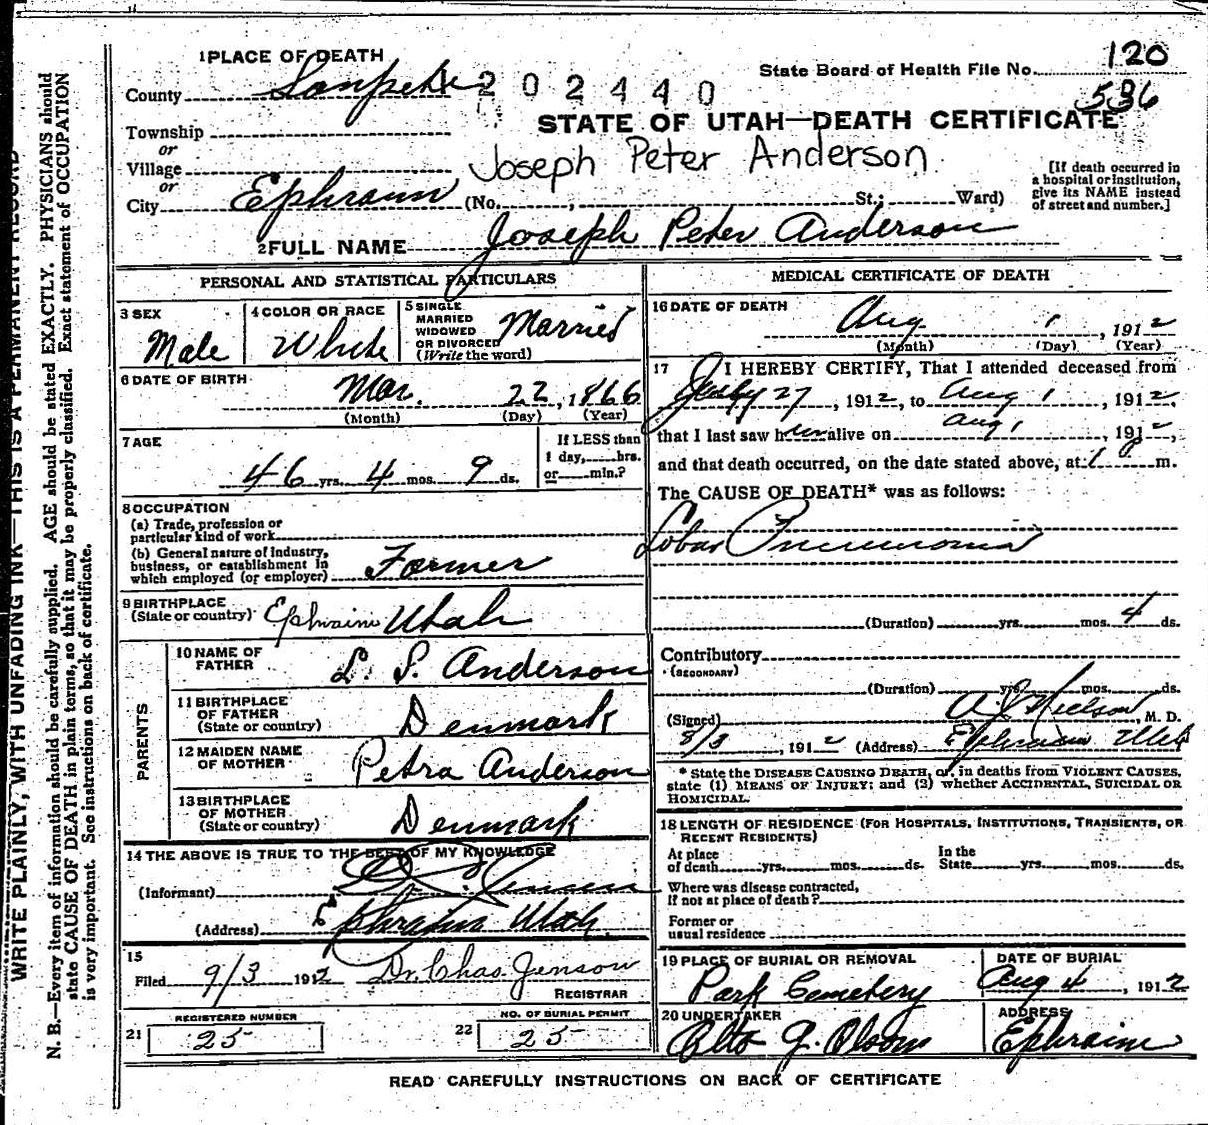 1 PLACE OF DEATH
State Board of Health File No. 120
County Sanpete 202440 536
STATE OF UTAH—DEATH CERTIFICATE
Township
or
Village Joseph Peter Anderson
or
City Ephraim (No. , St.; Ward)
[If death occurred in
a hospital or institution,
give its NAME instead
of street and number.]
2 FULL NAME Joseph Peter Anderson
PERSONAL AND STATISTICAL PARTICULARS
3 SEX Male
4 COLOR OR RACE White
5 SINGLE
MARRIED
WIDOWED
OR DIVORCED
(Write the word) Married
6 DATE OF BIRTH
Mar. 22, 1866
(Month) (Day) (Year)
7 AGE
46 yrs. 4 mos. 9 ds.
If LESS than
1 day, hrs.
or min.?
8 OCCUPATION
(a) Trade, profession or
particular kind of work
(b) General nature of industry,
business, or establishment in
which employed (or employer) Farmer
9 BIRTHPLACE
(State or country) Ephraim Utah
PARENTS
10 NAME OF
FATHER L. S. Anderson
11 BIRTHPLACE
OF FATHER
(State or country) Denmark
12 MAIDEN NAME
OF MOTHER Petra Anderson
13 BIRTHPLACE
OF MOTHER
(State or country) Denmark
14 THE ABOVE IS TRUE TO THE BEST OF MY KNOWLEDGE
(Informant)
(Address) Ephraim Utah
15
Filed 9/3 1912 Dr. Chas. Jenson
REGISTRAR
REGISTERED NUMBER
21 25
NO. OF BURIAL PERMIT
22 25
MEDICAL CERTIFICATE OF DEATH
16 DATE OF DEATH
Aug 1, 1912
(Month) (Day) (Year)
17 I HEREBY CERTIFY, That I attended deceased from
July 27, 1912, to Aug 1, 1912,
that I last saw him alive on Aug 1, 1912,
and that death occurred, on the date stated above, at 1 P m.
The CAUSE OF DEATH* was as follows:
Lobar Pneumonia
(Duration) yrs. mos. 4 ds.
Contributory
(SECONDARY)
(Duration) yrs. mos. ds.
(Signed) A J Nielson, M. D.
8/3, 1912 (Address) Ephraim Utah
* State the DISEASE CAUSING DEATH, or, in deaths from VIOLENT CAUSES,
state (1) MEANS OF INJURY; and (2) whether ACCIDENTAL, SUICIDAL OR
HOMICIDAL.
18 LENGTH OF RESIDENCE (FOR HOSPITALS, INSTITUTIONS, TRANSIENTS, OR
RECENT RESIDENTS)
At place
of death yrs. mos. ds.
In the
State yrs. mos. ds.
Where was disease contracted,
if not at place of death?
Former or
usual residence
19 PLACE OF BURIAL OR REMOVAL
Park Cemetery
DATE OF BURIAL
Aug 4, 1912
20 UNDERTAKER
ADDRESS
Ephraim
READ CAREFULLY INSTRUCTIONS ON BACK OF CERTIFICATE
WRITE PLAINLY, WITH UNFADING INK—THIS IS A PERMANENT RECORD
N. B.—Every item of information should be carefully supplied. AGE should be stated EXACTLY. PHYSICIANS should
state CAUSE OF DEATH in plain terms, so that it may be properly classified. Exact statement of OCCUPATION
is very important. See instructions on back of certificate.